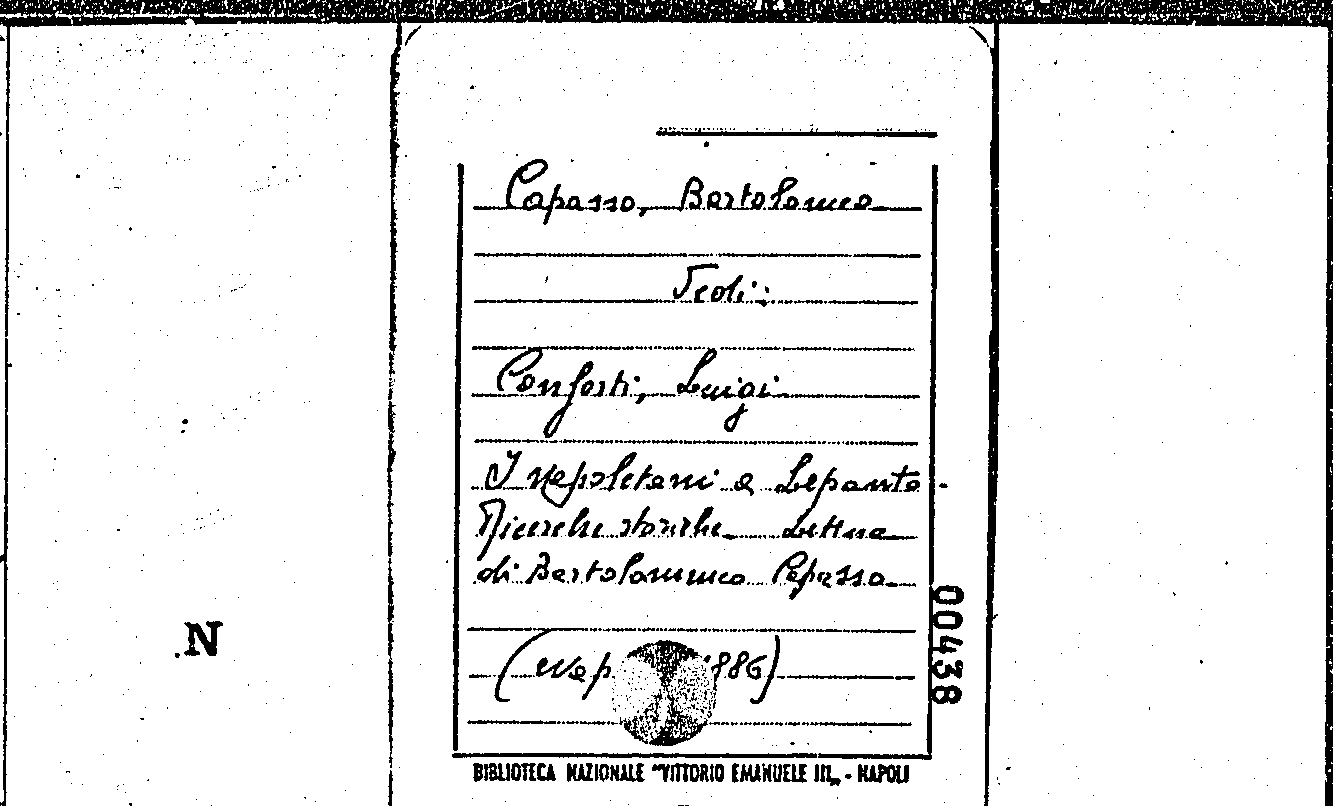 Capasso, Bartolomeo
Vedi:
Conforti, Luigi
I Napoletani a Lepanto.
Ricerche storiche. Lettera
di Bartolommeo Capasso
(Nap. 1886)
00438
N
BIBLIOTECA NAZIONALE "VITTORIO EMANUELE III„ - NAPOLI